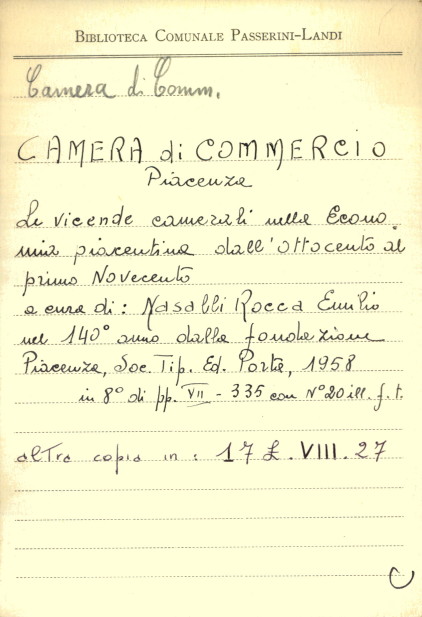 BIBLIOTECA COMUNALE PASSERINI-LANDI
Camera di Comm.
CAMERA di COMMERCIO
Piacenza
Le vicende camerali nella Econo
mia piacentina dall'ottocento al
primo Novecento
a cura di: Nasalli Rocca Emilio
nel 140° anno dalla fondazione
Piacenza, Soc. Tip. Ed. Porta, 1958
in 8° di pp. VII - 335 con N° 20 ill. f. t.
altra copia in: 17 L. VIII. 27
C